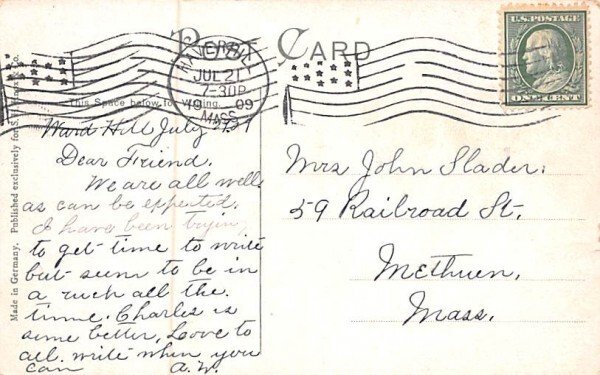 POST CARD
U.S. POSTAGE
ONE CENT
HAVERHILL
JUL 21
7-30P
1909
MASS.
This Space below for Writing.
Made in Germany. Published exclusively for
Ward Hill July
Dear Friend.
We are all well
as can be expected.
I have been trying
to get time to write
but seem to be in
a ruch all the
time. Charles is
some better, Love to
all. write when you
can A.W.
Mrs John Slader.
59 Railroad St.
Methuen,
Mass.